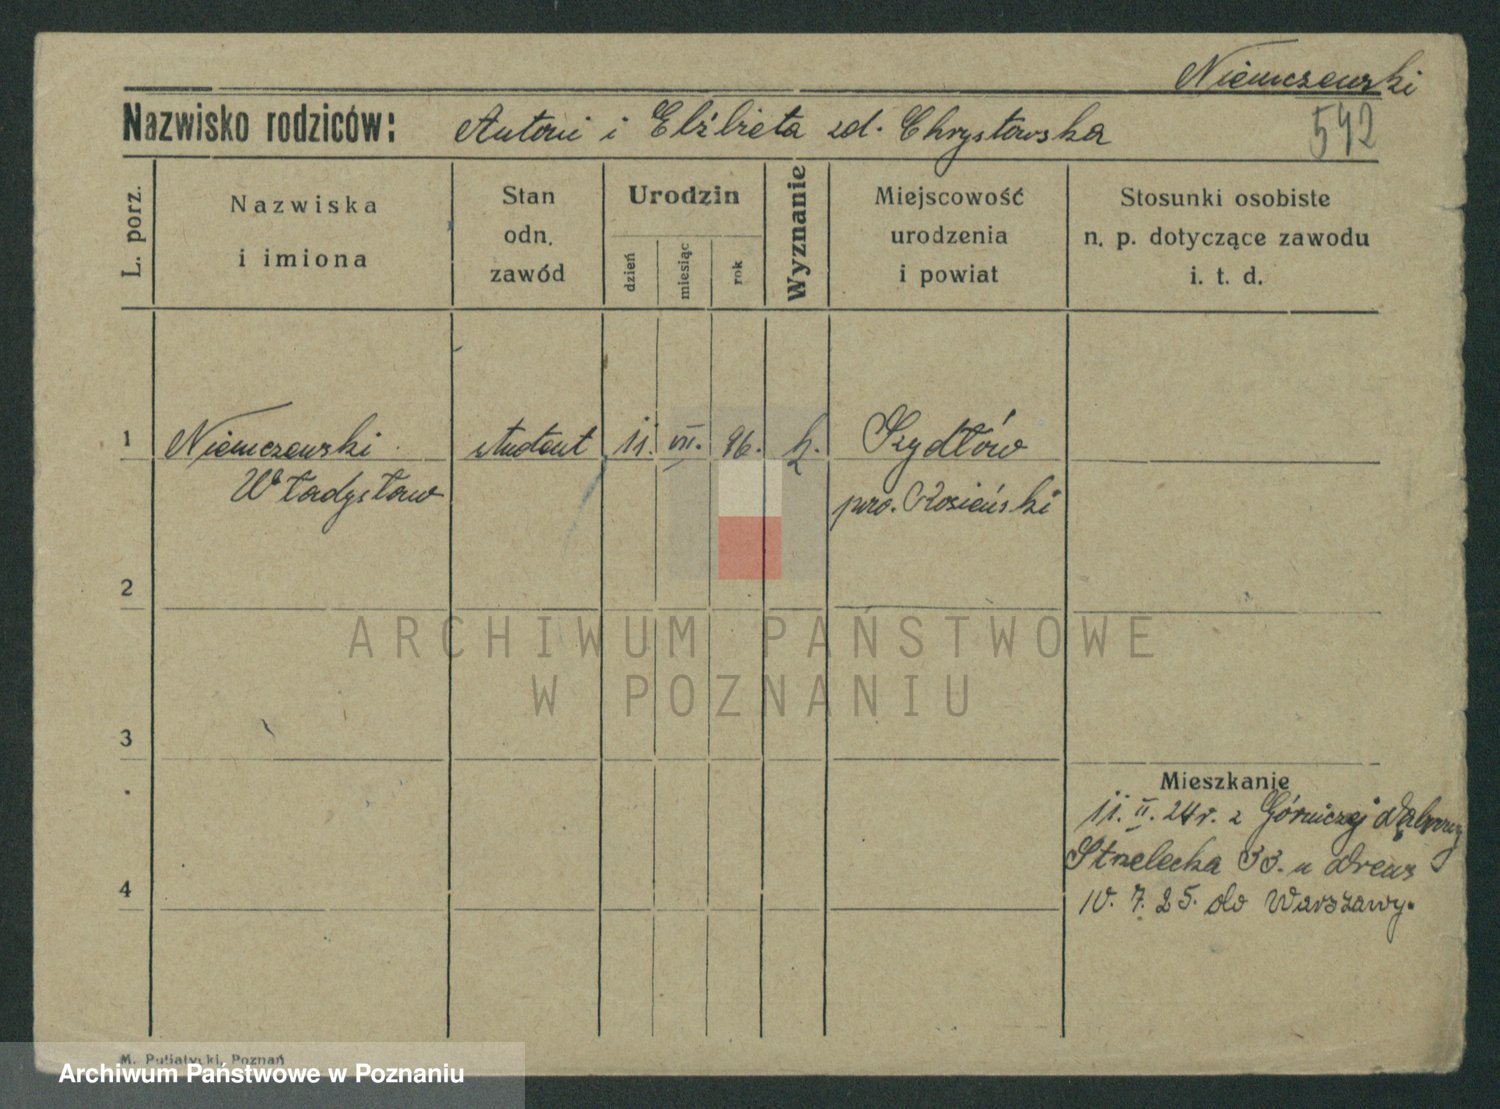 Niemczewski
Nazwisko rodziców: Antoni i Elżbieta zd. Chrystowska 542
L. porz.
Nazwiska
i imiona
Stan
odn.
zawód
Urodzin
dzień
miesiąc
rok
Wyznanie
Miejscowość
urodzenia
i powiat
Stosunki osobiste
n. p. dotyczące zawodu
i. t. d.
1 Niemczewski student 11. VII. 96. k. Szydłów
Władysław pow.
2
ARCHIWUM PAŃSTWOWE
W POZNANIU
3
Mieszkanie
11. II. 24 r. z Górniczej Dąbrowy
4 Strzelecka 33. u Drews
10. 7. 25. do Warszawy.
M. Putiatycki, Poznań
Archiwum Państwowe w Poznaniu